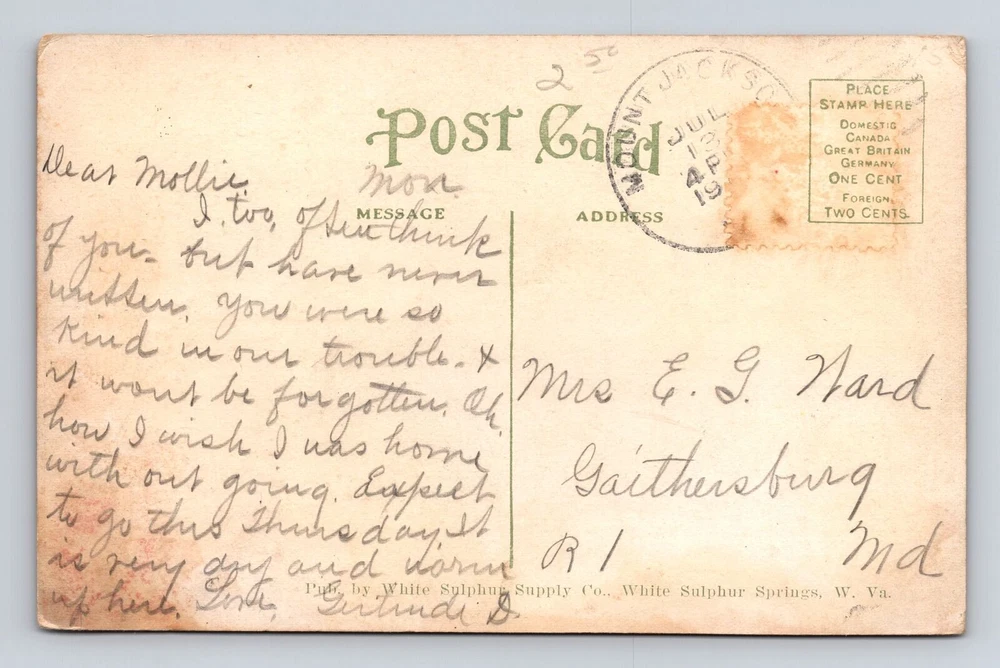 2 50
MOUNT JACKSO
JUL
4 P
19
PLACE
STAMP HERE
DOMESTIC
CANADA
GREAT BRITAIN
GERMANY
ONE CENT
FOREIGN
TWO CENTS
POST CARD
Dear Mollie Mon
MESSAGE
ADDRESS
I too, often think
of you - but have never
written. You were so
kind in our trouble - &
it wont be forgotten. Oh,
how I wish I was home
with out going. Expect
to go this Thursday. It
is very dry and warm
up here. Love, Gertrude D.
Mrs E. G. Ward
Gaithersburg
R 1 Md
Pub. by White Sulphur Supply Co., White Sulphur Springs, W. Va.